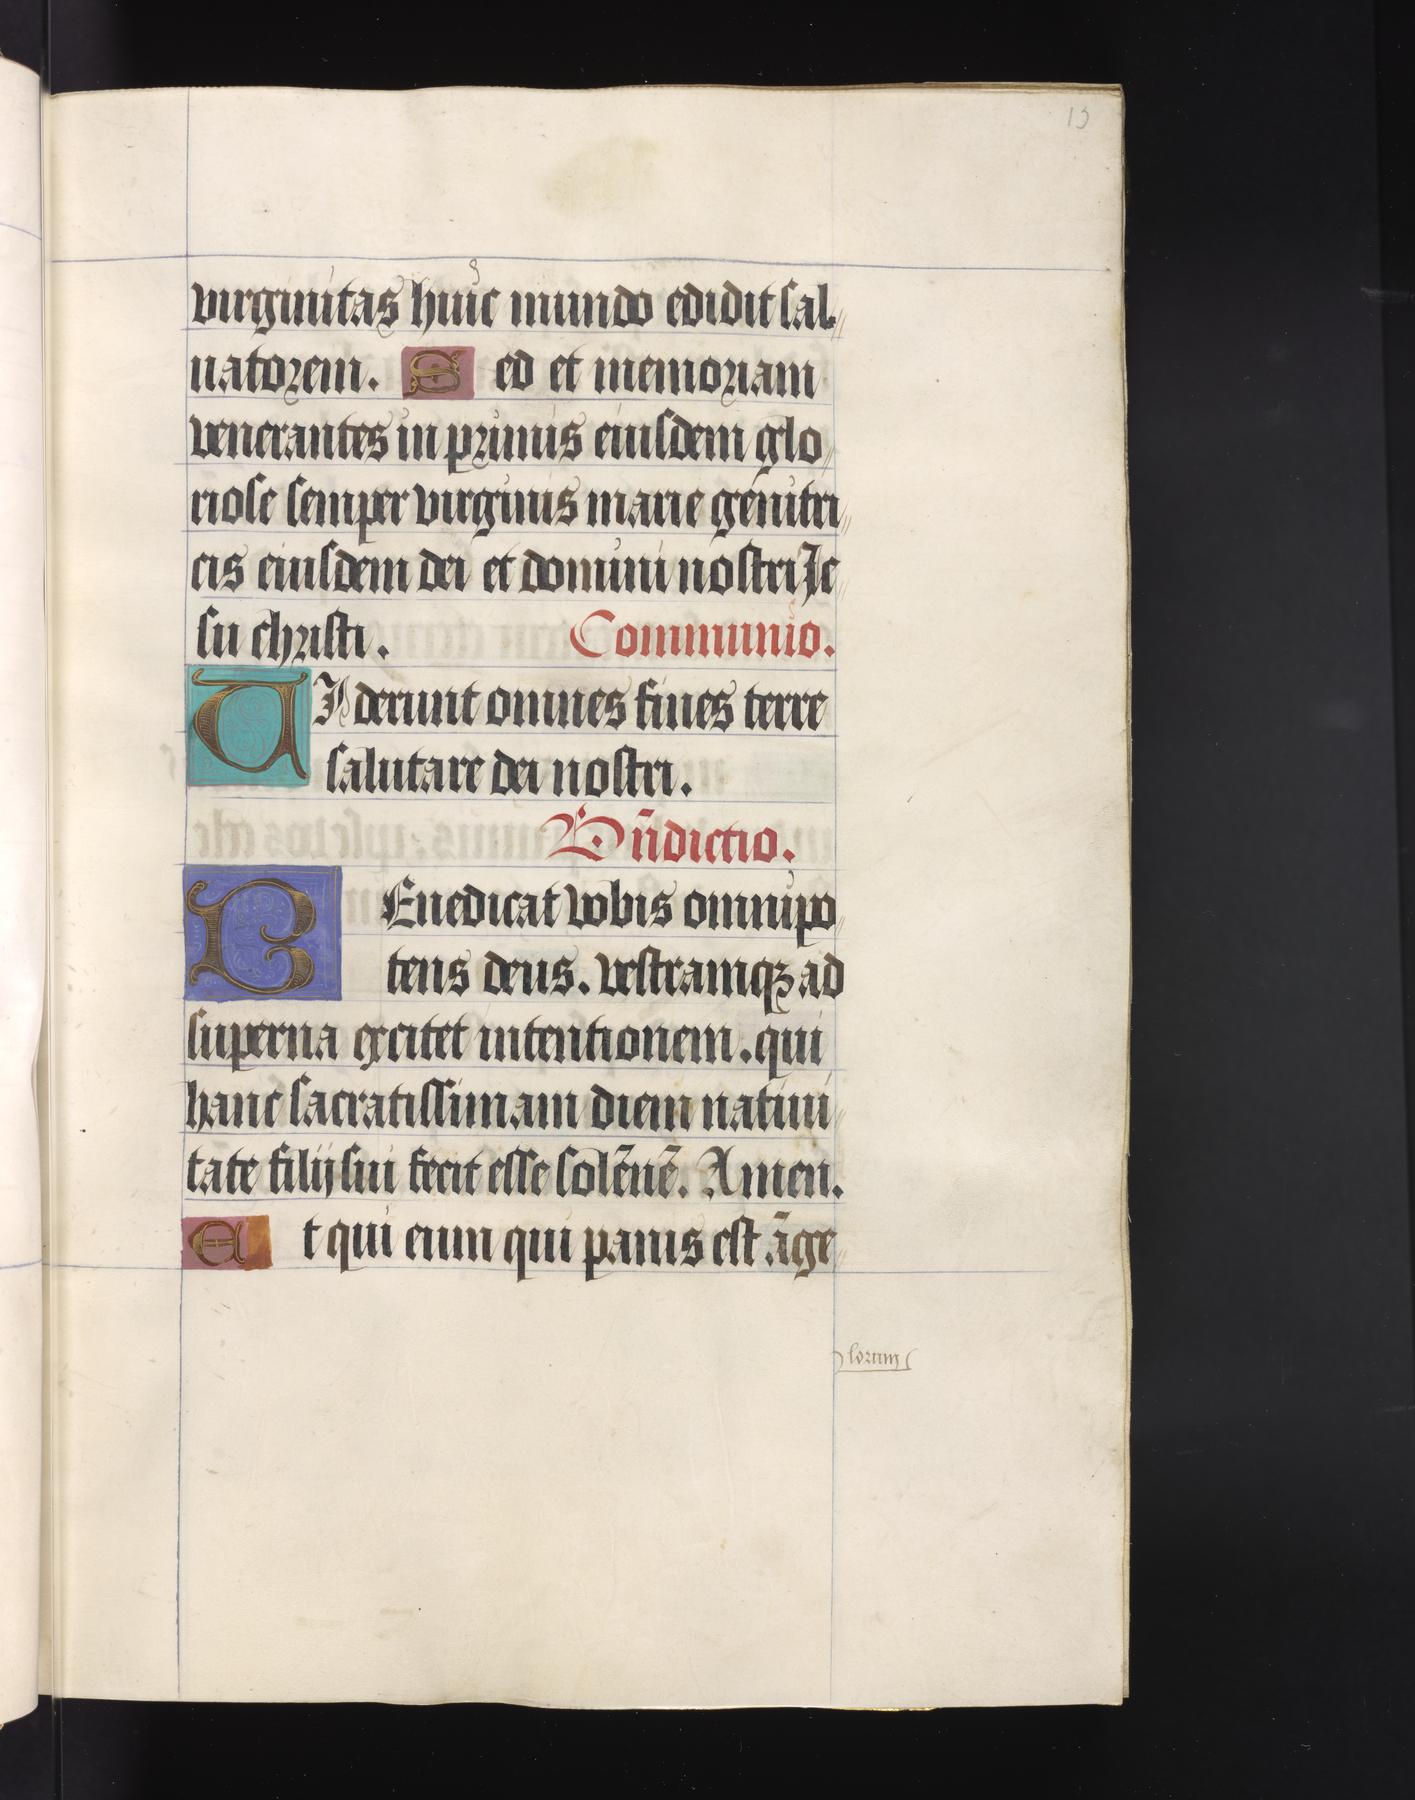 13
virginitas huic mundo edidit sal
uatorem. Sed et memoriam
venerantes in primis eiusdem glo
riose semper virginis marie genitri
cis eiusdem dei et domini nostri Je
su christi. Communio.
UIderunt omnes fines terre
salutare dei nostri.
Bñdictio.
BEnedicat vobis omnipo
tens deus. vestramqꝫ ad
superna excitet intentionem. qui
hanc sacratissimam diem natiui
tate filij sui fecit esse solēnē. Amen.
Et qui eum qui panis est āge
lorum